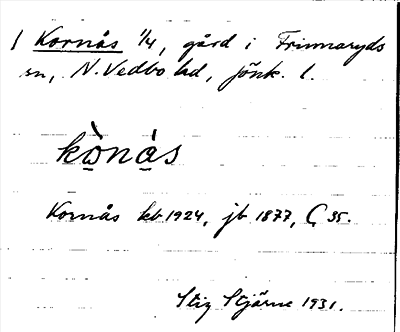 1 Kornås 1/4, gård i Frinnaryds
sn, N. Vedbo hd, Jönk. l.
kò̤nà̤s
Kornås kb 1924, jb 1877, G 35.
Stig Stjärne 1931.